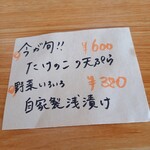 今が旬!! ¥600
たけのこの天ぷら
野菜いろいろ ¥320
自家製浅漬け